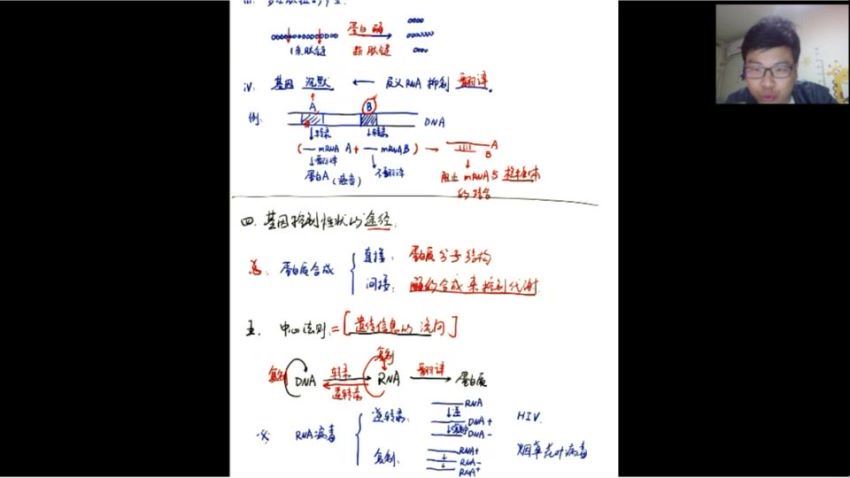 蛋白酶
1条肽链
数肽链
iv. 基因沉默 ← 反义RNA抑制翻译。
例:
A
B
DNA
↓转录
↓转录
(— mRNA A + — mRNA B) →
A
B
↓翻译
不翻译
蛋白A
阻止mRNA与核糖体
的结合
四、基因控制性状的途径:
蛋白质合成
直接: 蛋白质分子结构
间接: 酶的合成来控制代谢
五、中心法则:=[遗传信息的流向]
复制
复制
DNA
转录
逆转录
RNA
翻译
蛋白质
RNA病毒
逆转录:
RNA
↓逆
DNA+
DNA-
HIV.
复制:
RNA+
RNA-
RNA+
烟草花叶病毒